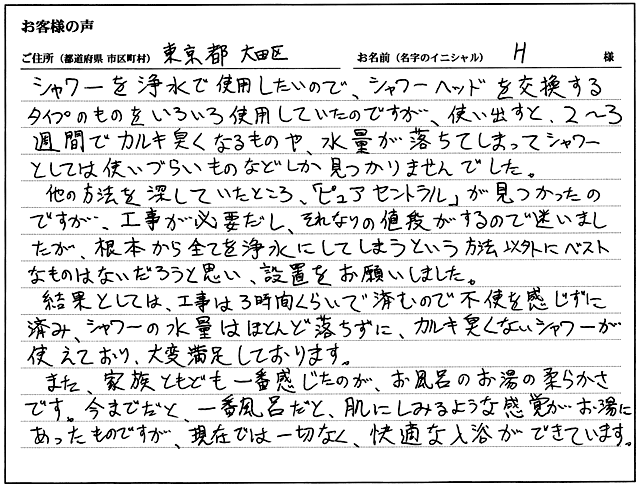 お客様の声
ご住所(都道府県 市区町村) 東京都 大田区 お名前(名字のイニシャル) H 様
シャワーを浄水で使用したいので、シャワーヘッドを交換する
タイプのものをいろいろ使用していたのですが、使い出すと、2〜3
週間でカルキ臭くなるものや、水量が落ちてしまってシャワー
としては使いづらいものなどしか見つかりませんでした。
他の方法を深していたところ、「ピュアセントラル」が見つかったの
ですが、工事が必要だし、それなりの値段がするので迷いまし
たが、根本から全てを浄水にしてしまうという方法以外にベスト
なものはないだろうと思い、設置をお願いしました。
結果としては、工事は3時間くらいで済むので不便を感じずに
済み、シャワーの水量はほとんど落ちずに、カルキ臭くないシャワーが
使えており、大変満足しております。
また、家族ともども一番感じたのが、お風呂のお湯の柔らかさ
です。今までだと、一番風呂だと、肌にしみるような感覚がお湯に
あったものですが、現在では一切なく、快適な入浴ができています。